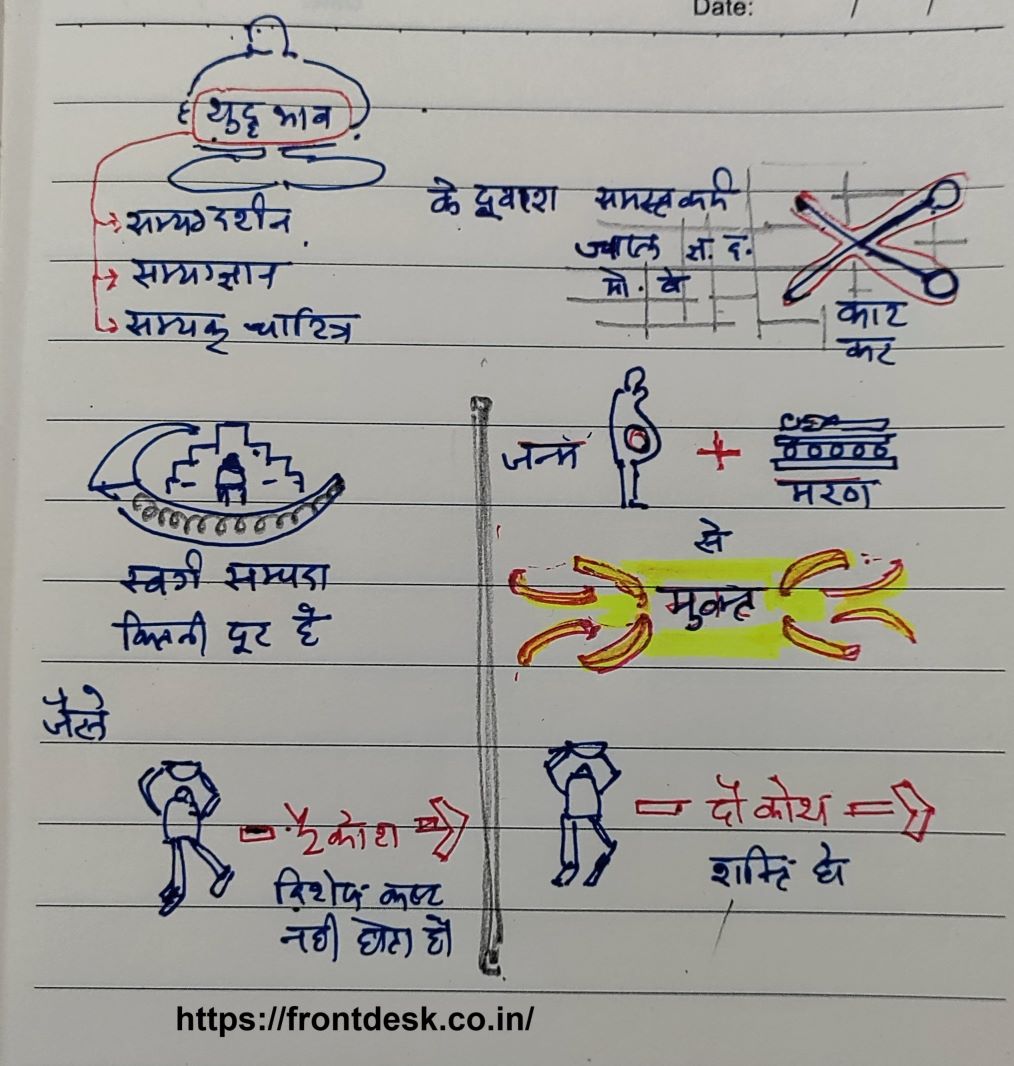 Date: / /
शुद्ध भाव
सम्यग दर्शन
सम्यग्ज्ञान
सम्यक् चारित्र
के द्वारा समस्त कर्म
ज्वाल ज्ञा. द.
मो. वे
काट
कर
जन्म + मरण
से
मुक्त
स्वर्ग सम्पदा
कितनी दूर है
जैसे
कोश
विशेष कष्ट
नही होता है
दो कोश
शक्ति से
https://frontdesk.co.in/